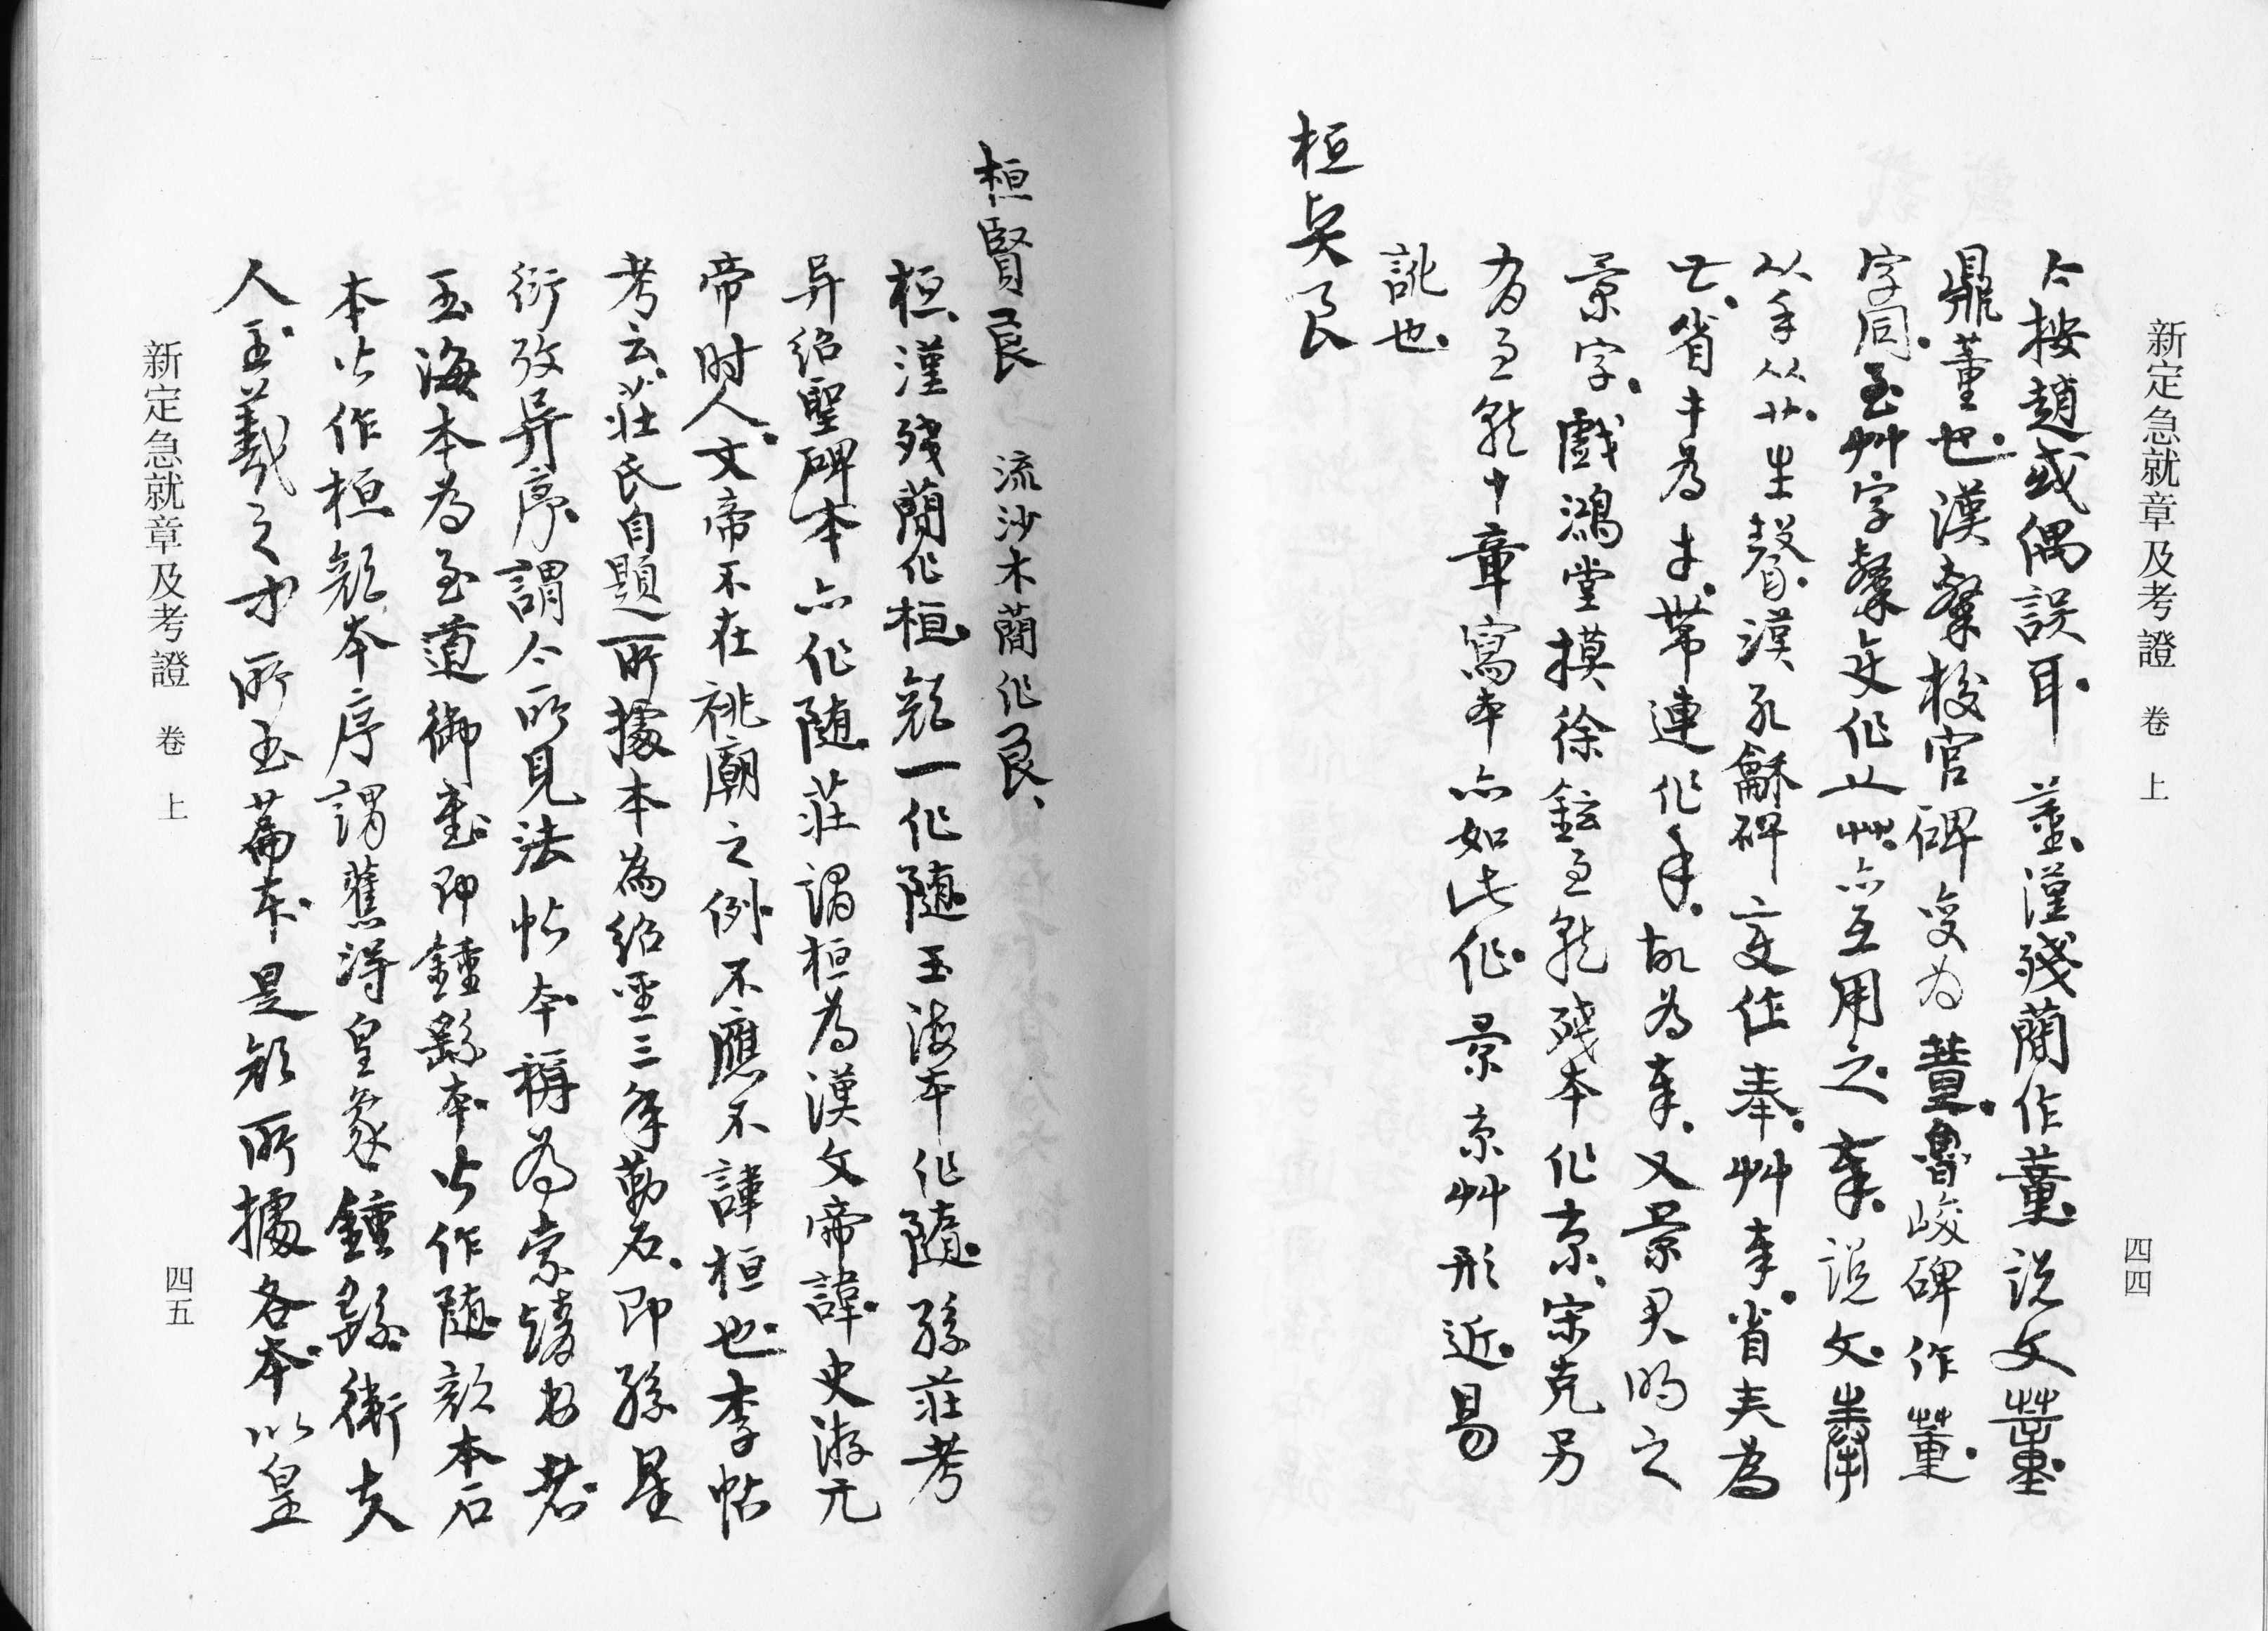 新定急就章及考證 卷 上
四四
今按趙或偶誤耳 董漢殘簡作董說文董
鼎董也漢 校官碑變為董魯峻碑作董
字同至艸字 文作 艸亦互用之奉說文奉
从手从廾丰聲漢孔龢碑 变作奉艸奉省夫為
省丰為 帶連作 故為奉又景君的之
景字戲鴻堂摸徐鉉急就殘本作京宋克另
有急就十章寫本亦如此作景京艸形近易
訛也
桓賢良
桓賢良 流沙木簡作良
桓漢殘簡作桓顏一作隨玉海本作隨孫莊考
异紹聖碑本亦作隨莊謂桓為漢文帝諱史游元
帝时人文帝不在祧廟之例不應不諱桓也李帖
考云莊氏自題所據本為紹聖三年勒石即孫星
衍攷异序謂今所見法帖本稱為索靖書者
玉海本為至道御書即鍾繇本皆作隨顏本石
本皆作桓顏本序謂舊得皇象鍾繇衛夫
人王羲之等所書篇本是顏所據各本以皇
新定急就章及考證 卷 上
四五